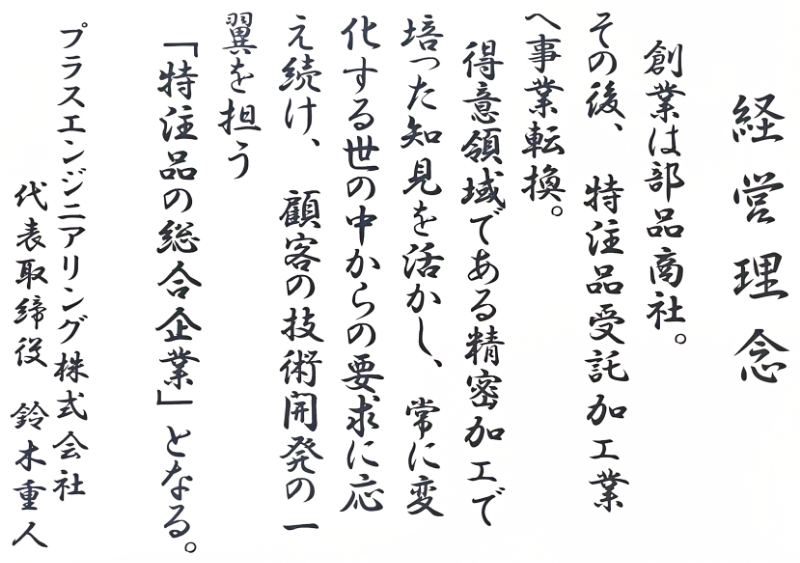 経営理念
創業は部品商社。
その後、特注品受託加工業
へ事業転換。
得意領域である精密加工で
培った知見を活かし、常に変
化する世の中からの要求に応
え続け、顧客の技術開発の一
翼を担う
「特注品の総合企業」となる。
プラスエンジニアリング株式会社
代表取締役 鈴木重人